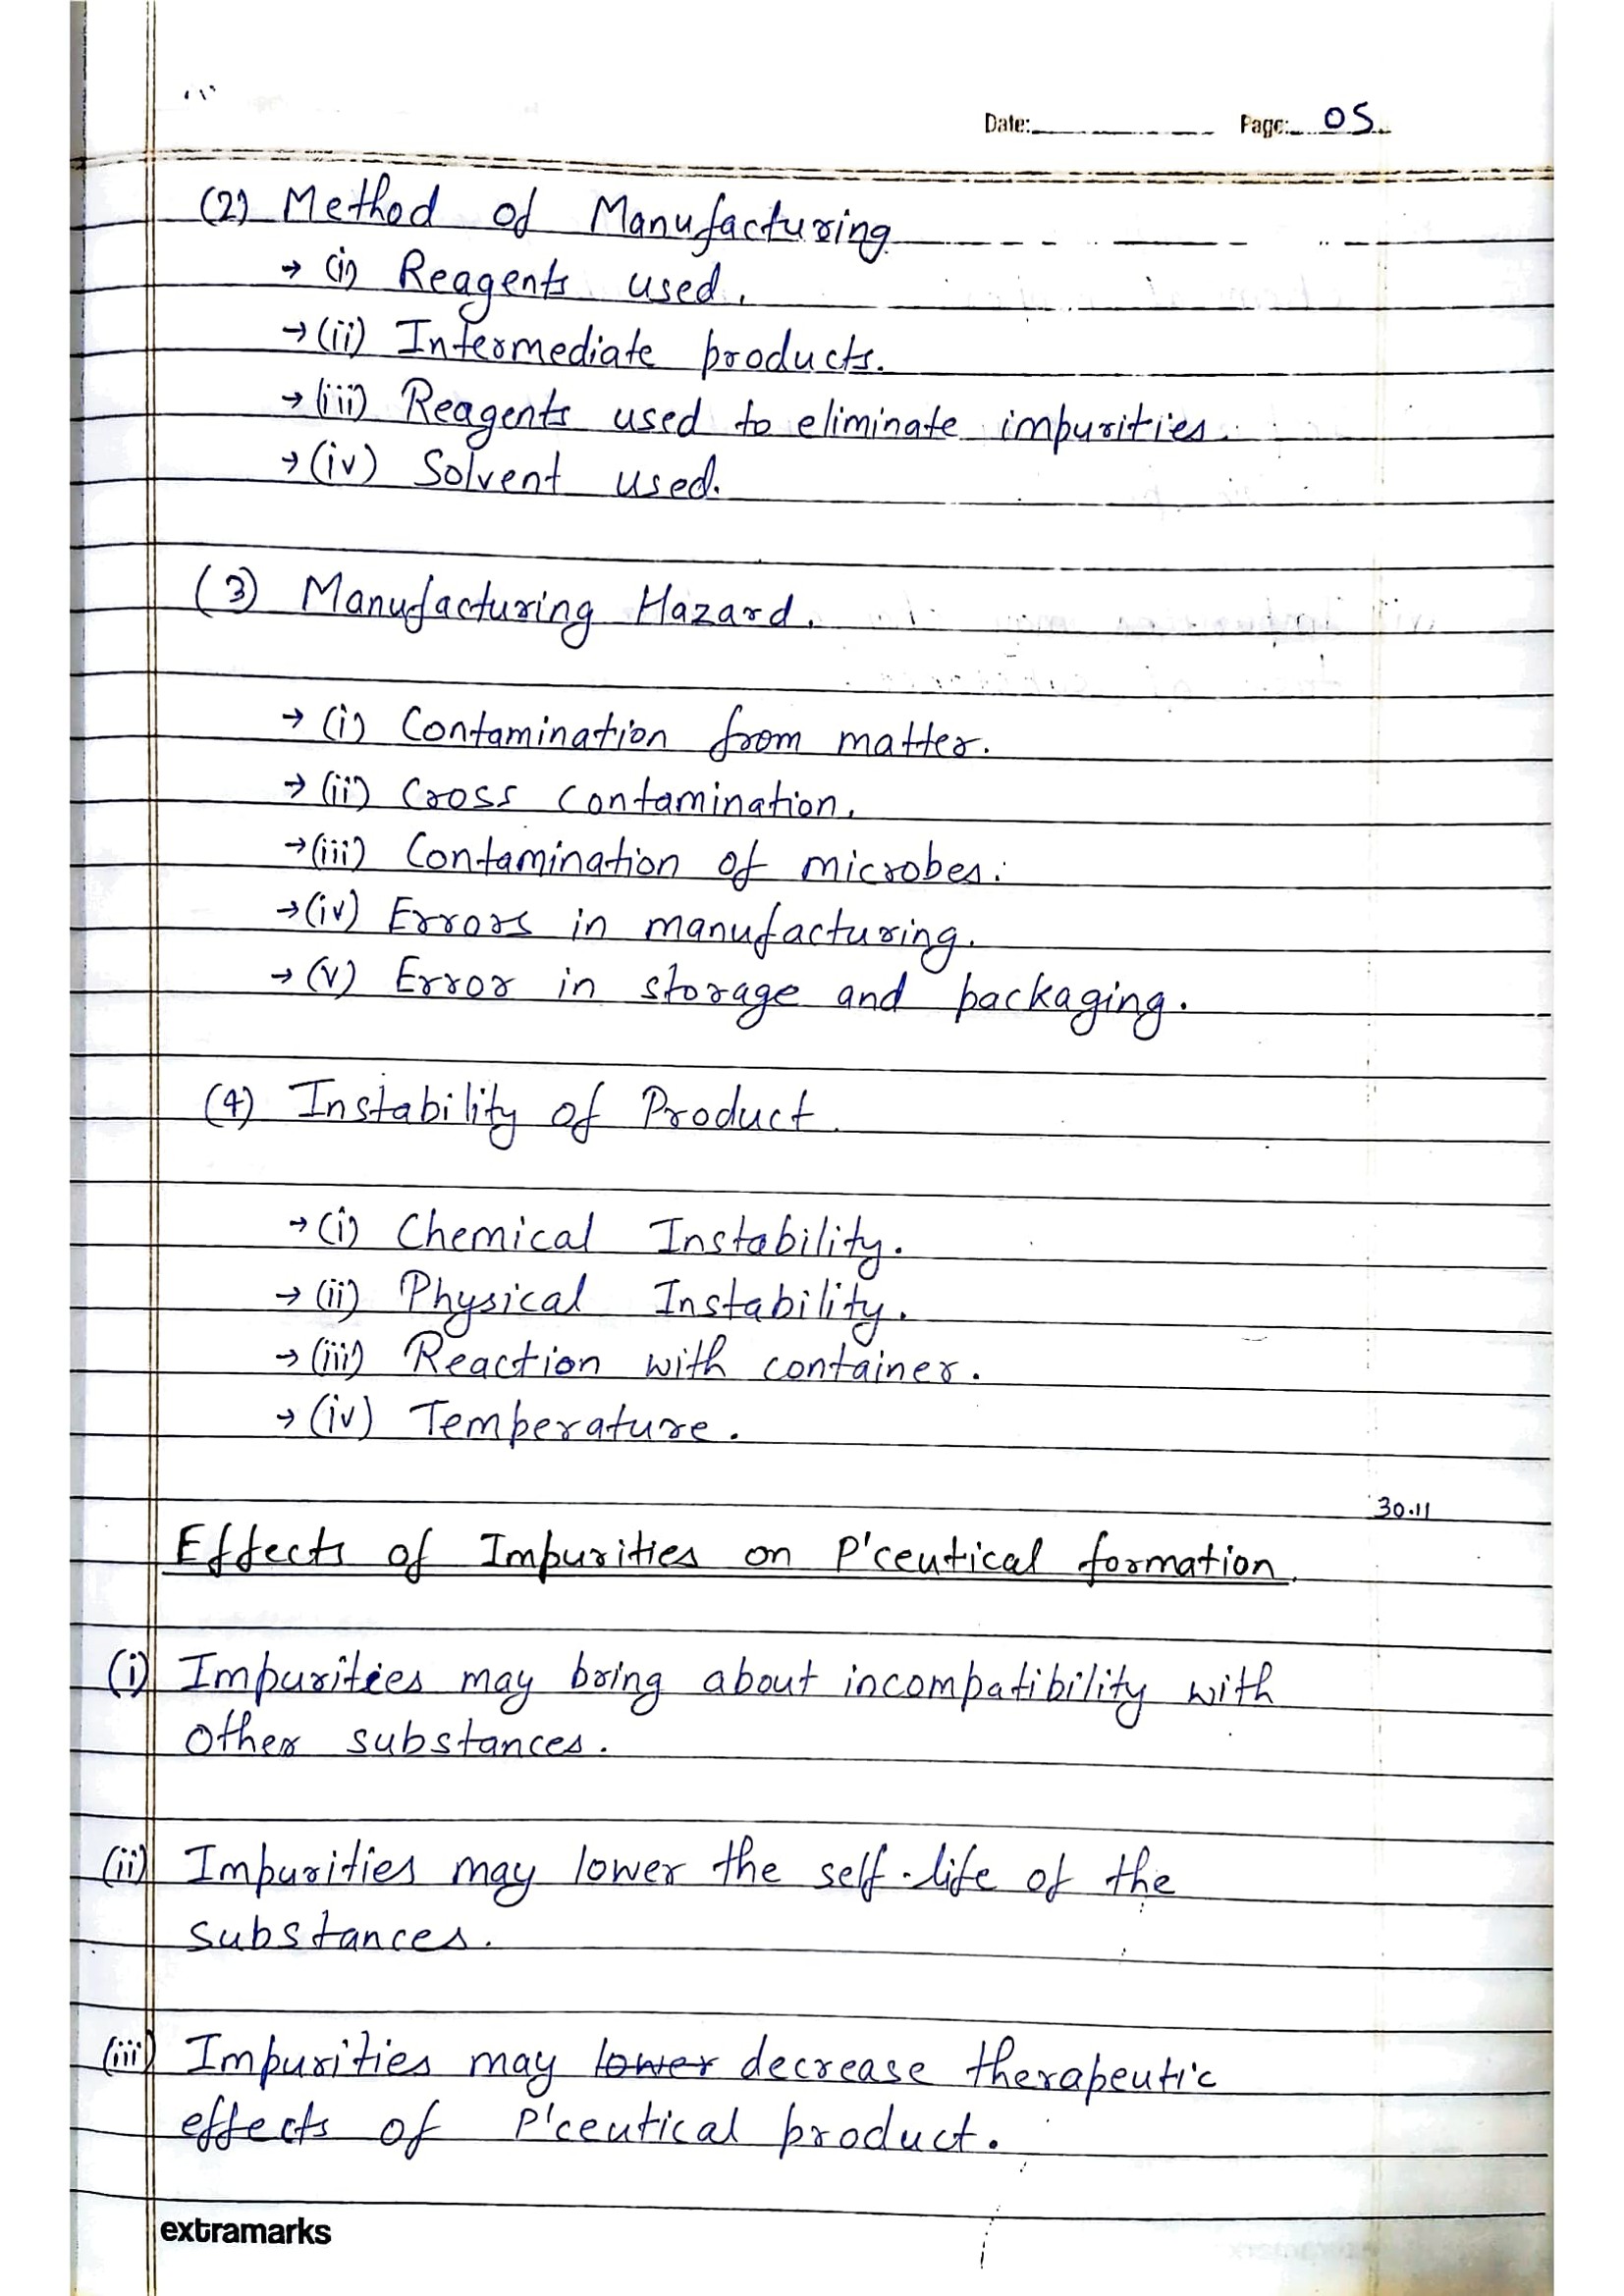 Date: Page: 05
(2) Method of Manufacturing
→ (i) Reagents used.
→ (ii) Intermediate products.
→ (iii) Reagents used to eliminate impurities.
→ (iv) Solvent used.
(3) Manufacturing Hazard.
→ (i) Contamination from matter.
→ (ii) Cross contamination.
→ (iii) Contamination of microbes.
→ (iv) Errors in manufacturing.
→ (v) Error in storage and packaging.
(4) Instability of Product.
→ (i) Chemical Instability.
→ (ii) Physical Instability.
→ (iii) Reaction with container.
→ (iv) Temperature.
30.11
Effects of Impurities on P'ceutical formation.
(i) Impurities may bring about incompatibility with
other substances.
(ii) Impurities may lower the self-life of the
substances.
(iii) Impurities may lower decrease therapeutic
effects of P'ceutical product.
extramarks